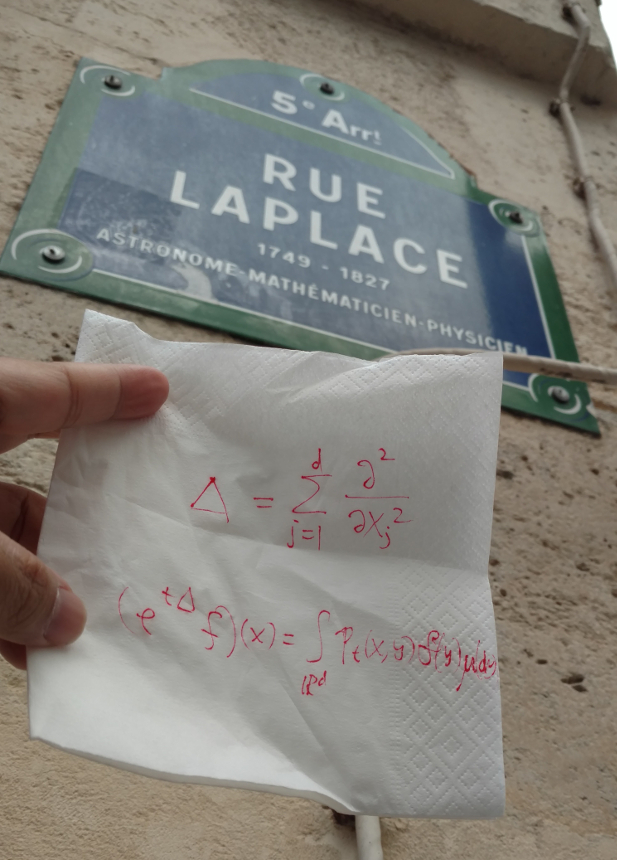 5e Arrt
RUE
LAPLACE
1749 - 1827
ASTRONOME-MATHÉMATICIEN-PHYSICIEN
Δ = ∑_{j=1}^{d} ∂²/∂x_j²
(e^{tΔ} f)(x) = ∫_{ℝ^d} p_t(x,y) f(y) μ(dy)